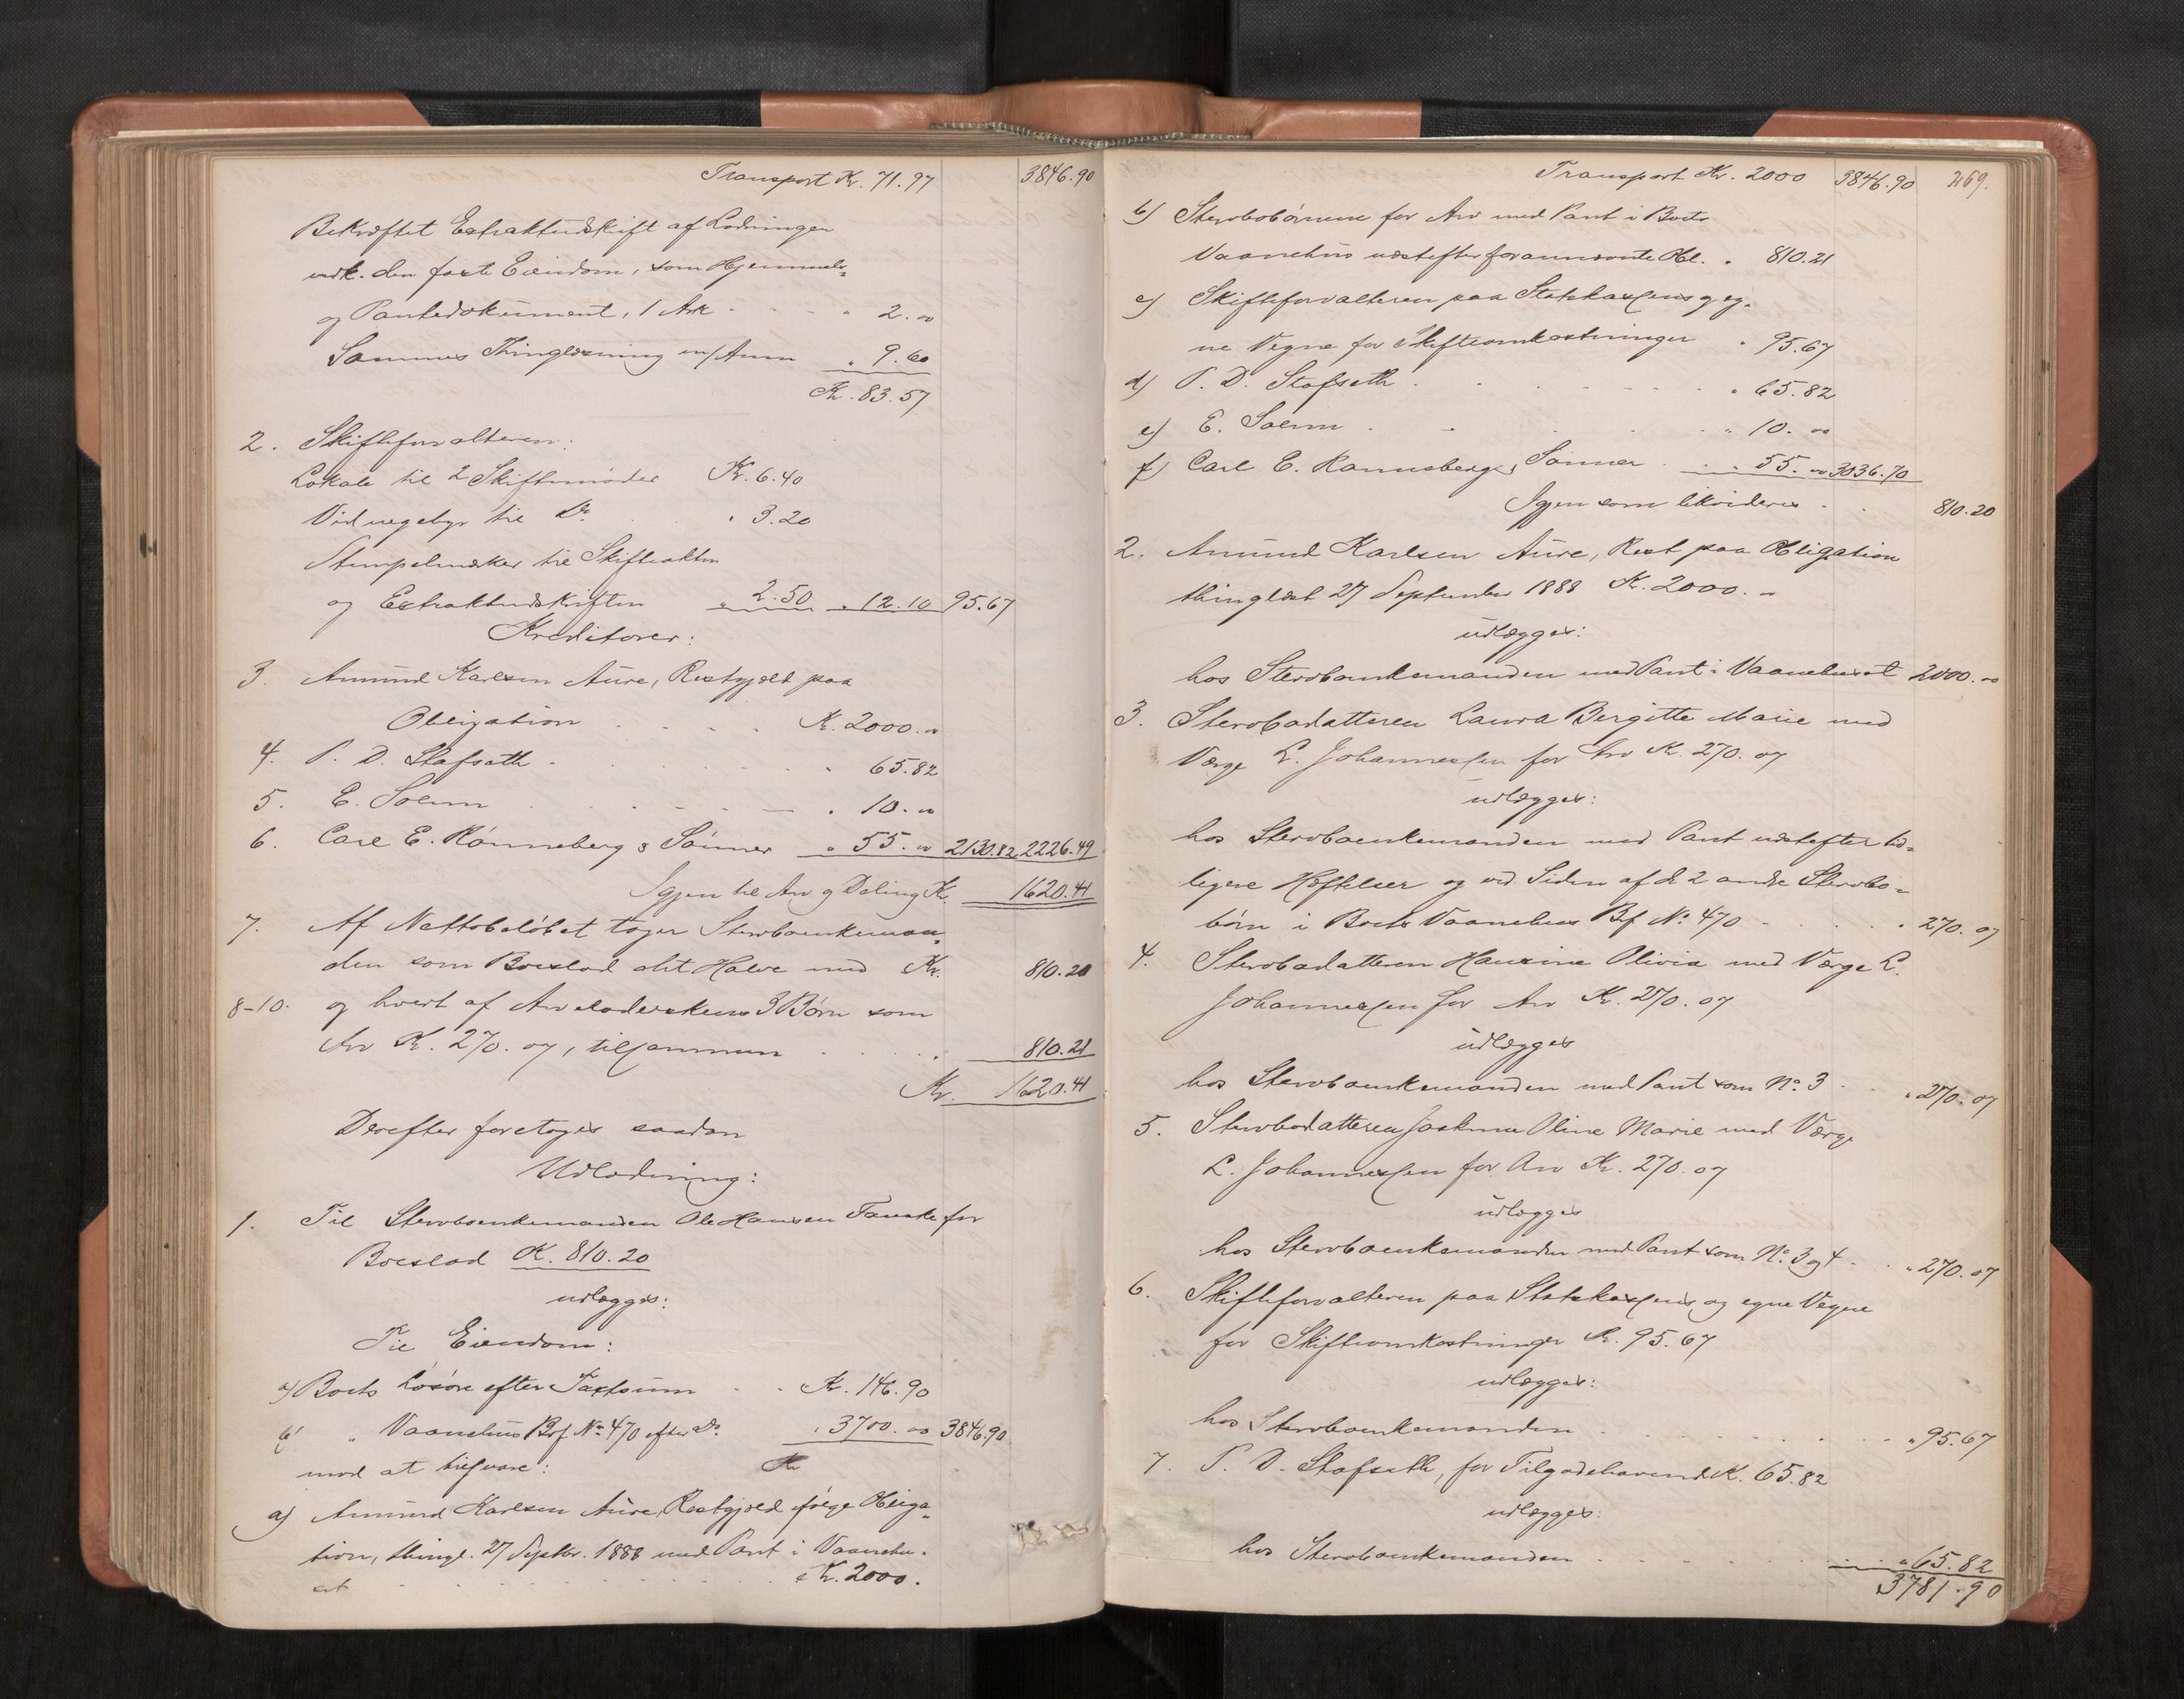 Transport Kr. 71.97 3846.90
Bekræftet Extraktudskrift af Lodningen
vedk. den faste Eiendom, som Hjemmels-
og Pantedokument, 1 Ark " 2.00
Sammes Thinglæsning m/Anm " 9.60
Kr. 83.57
2. Skifteforvalteren:
Lokale til 2 Skiftemøder Kr. 6.40
Vidnegebyr til Do " 3.20
Stempelmærker til Skifteakten
og Extraktudskriften " 2.50 " 12.10 95.67
Kreditorer:
3. Amund Karlsen Aure, Restgjæld paa
Obligation Kr. 2000.00
4. P. D. Stafseth " 65.82
5. E. Solem " 10.00
6. Carl E. Rønneberg & Sønner " 55.00 2130.82 2226.49
Igjen til Arv og Deling Kr. 1620.41
7. Af Nettobeløbet tager Stervboenkeman-
den som Boeslod det Halve med Kr. 810.20
8-10. og hvert af Arveladerskens 3 Børn som
Arv Kr. 270.07, tilsammen 810.21
Kr. 1620.41
Derefter foretoges saadan
Udlodning:
1. Til Stervboenkemanden Ole Hansen for
Boeslod Kr. 810.20
udlægges:
Til Eiendom:
a) Boets Løsøre efter Taxtsum Kr. 146.90
b) " Vaanehus Brf No. 470 efter Do " 3700.00 3846.90
mod at tilsvare: Kr
a) Amund Karlsen Aure, Restgjæld ifølge Obliga-
tion, thingl. 27 Septbr. 1888 med Pant i Vaanehu-
set Kr. 2000.
Transport Kr. 2000 3846.90 269.
b) Stervbobørnene for Arv med Pant i Boets
Vaanehus næstefter forannævnte Obl. " 810.21
c) Skifteforvalteren paa Statskassens og eg-
ne Vegne for Skifteomkostninger " 95.67
d) P. D. Stafseth " 65.82
e) E. Solem " 10.00
f) Carl E. Rønneberg & Sønner " 55.00 3036.70
Igjen som likvideres 810.20
2. Amund Karlsen Aure, Rest paa Obligation
thinglæst 27 September 1888 Kr. 2000.00
udlægges:
hos Stervboenkemanden med Pant i Vaanehuset 2000.00
3. Stervbodatteren Laura Bergitte Marie med
Værge L. Johannessen for Arv Kr. 270.07
udlægges:
hos Stervboenkemanden med Pant næstefter tid-
ligere Hæftelser og ved Siden af de 2 andre Stervbo-
børn i Boets Vaanehus Brf No. 470 " 270.07
4. Stervbodatteren Hansine Olivia med Værge L.
Johannessen for Arv Kr. 270.07
udlægges
hos Stervboenkemanden med Pant som No. 3 " 270.07
5. Stervbodatteren Oline Marie med Værge
L. Johannessen for Arv Kr. 270.07
udlægges
hos Stervboenkemanden med Pant som No. 3 og 4 " 270.07
6. Skifteforvalteren paa Statskassens og egne Vegne
for Skifteomkostninger Kr. 95.67
udlægges:
hos Stervboenkemanden " 95.67
7. P. D. Stafseth, for Tilgodehavende Kr. 65.82
udlægges:
hos Stervboenkemanden " 65.82
3781.90